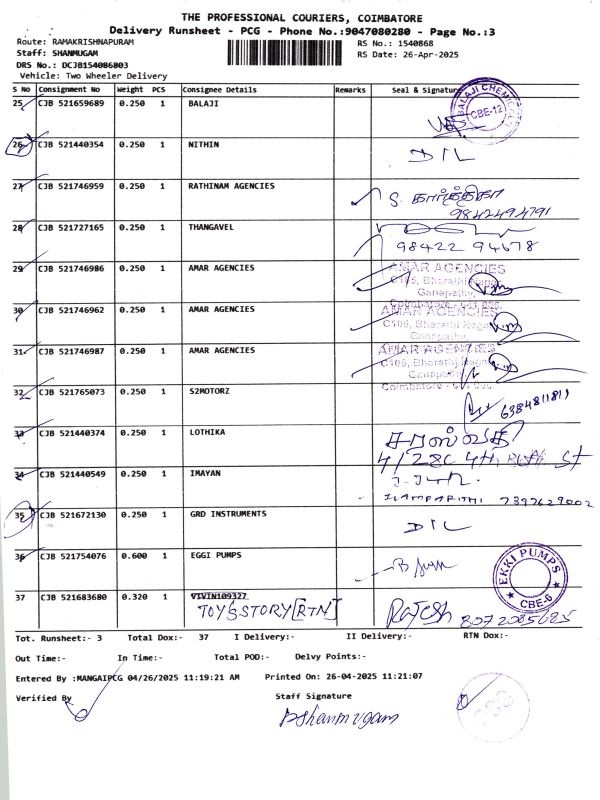 THE PROFESSIONAL COURIERS, COIMBATORE
Delivery Runsheet - PCG - Phone No.:9047080280 - Page No.:3
Route: RAMAKRISHNAPURAM RS No.: 1540868
Staff: SHANMUGAM RS Date: 26-Apr-2025
DRS No.: DCJB154086803
Vehicle: Two Wheeler Delivery
S No Consignment No Weight PCS Consignee Details Remarks Seal & Signature
25 CJB 521659689 0.250 1 BALAJI BALAJI CHEMIC CBE-12
26 CJB 521440354 0.250 1 NITHIN DIL
27 CJB 521746959 0.250 1 RATHINAM AGENCIES S. கார்த்திகா
9842494791
28 CJB 521727165 0.250 1 THANGAVEL
98422 94678
29 CJB 521746986 0.250 1 AMAR AGENCIES AMAR AGENCIES
C106, Bharathi Nagar,
Ganapathy,
Coimbatore - 641 006.
30 CJB 521746962 0.250 1 AMAR AGENCIES AMAR AGENCIES
C106, Bharathi Nagar
Ganapathy,
31 CJB 521746987 0.250 1 AMAR AGENCIES AMAR AGENCIES
C106, Bharathi Nagar,
Ganapathy,
Coimbatore - 641 006.
32 CJB 521765073 0.250 1 S2MOTORZ
6384811811
33 CJB 521440374 0.250 1 LOTHIKA சரஸ்வதி
4/28C 4th St
34 CJB 521440549 0.250 1 IMAYAN
ILAMPARITHI 7397629002
35 CJB 521672130 0.250 1 GRD INSTRUMENTS DIL
36 CJB 521754076 0.600 1 EGGI PUMPS EKKI PUMPS CBE-6
37 CJB 521683680 0.320 1 VIVIN109327
TOY'S STORY [RTN] Rajesh 8072085685
Tot. Runsheet:- 3 Total Dox:- 37 I Delivery:- II Delivery:- RTN Dox:-
Out Time:- In Time:- Total POD:- Delvy Points:-
Entered By :MANGAIPCG 04/26/2025 11:19:21 AM Printed On: 26-04-2025 11:21:07
Verified By Staff Signature
PShanmugam
PCG